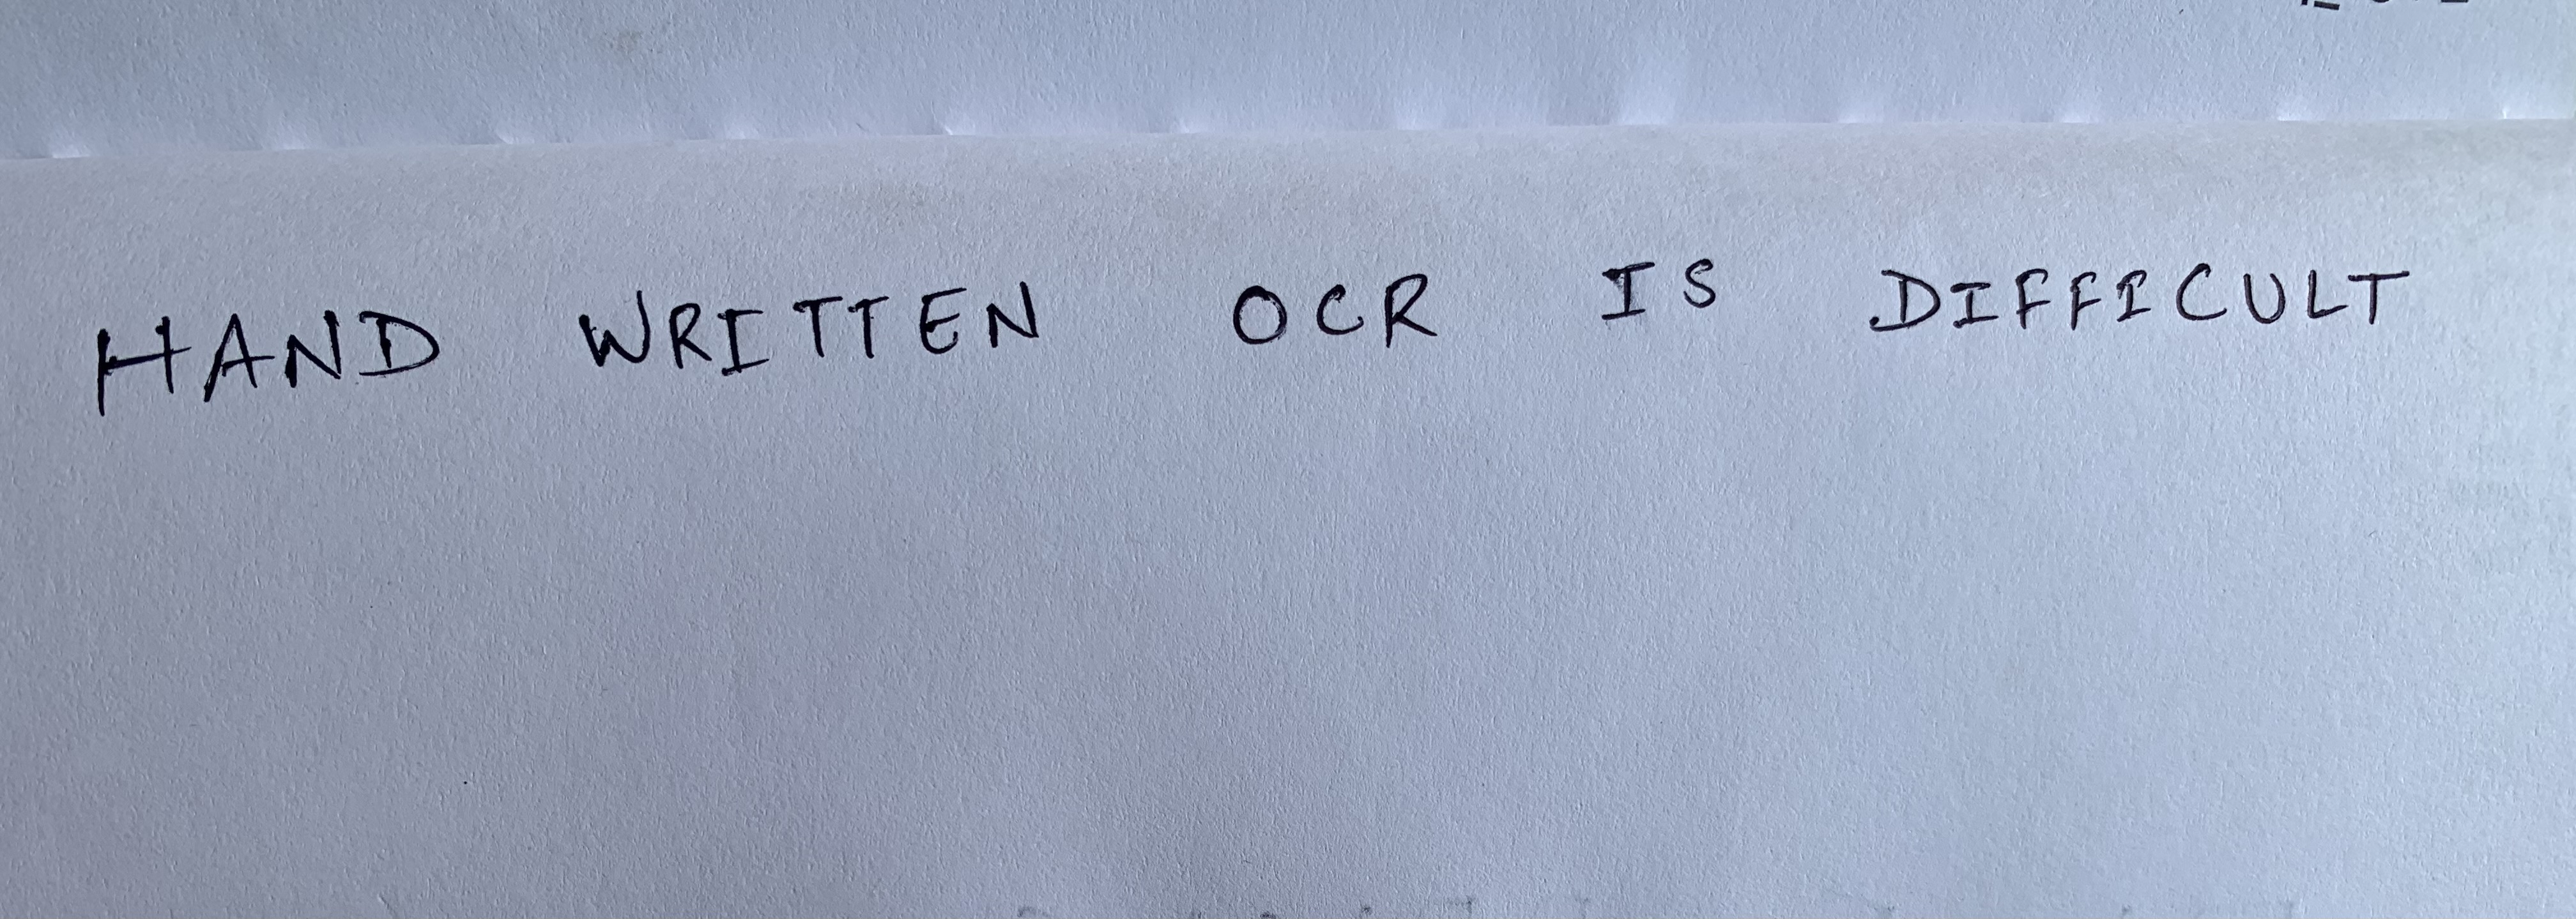 HAND WRITTEN OCR IS DIFFICULT